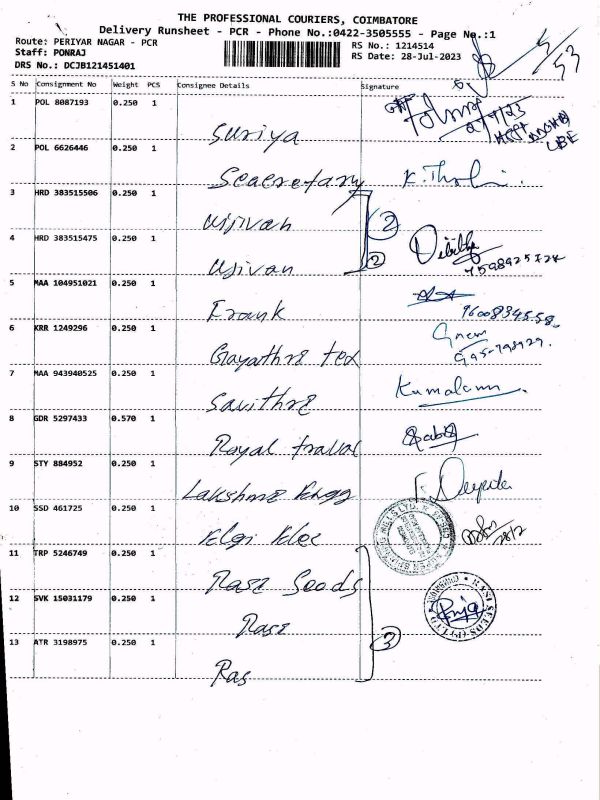 THE PROFESSIONAL COURIERS, COIMBATORE
Delivery Runsheet - PCR - Phone No.:0422-3505555 - Page No.:1
Route: PERIYAR NAGAR - PCR
RS No.: 1214514
Staff: PONRAJ
RS Date: 28-Jul-2023
DRS No.: DCJB121451401
S No Consignment No Weight PCS Consignee Details Signature
1 POL 8087193 0.250 1 Suriya
2 POL 6626446 0.250 1 Seacretary
3 HRD 383515506 0.250 1 Ujivan 2
4 HRD 383515475 0.250 1 Ujivan 2
5 MAA 104951021 0.250 1 Frank
9600834558
6 KRR 1249296 0.250 1 Gayathre tex
7 MAA 943940525 0.250 1 Savithre Kamalam
8 GDR 5297433 0.570 1 Royal traval
9 STY 884952 0.250 1 Lakshme Engg Deepde
10 SSD 461725 0.250 1 Elgi Elec
11 TRP 5246749 0.250 1 Rase Seeds
12 SVK 15031179 0.250 1 Rase
13 ATR 3198975 0.250 1 Ras 3